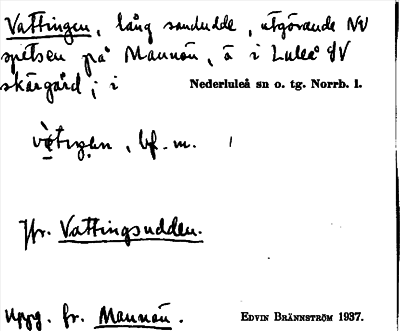 Vattingen, lång sandudde, utgörande NV
spetsen på Mannön, ö i Luleå
skärgård; i Nederluleå sn o. tg. Norrb. l.
bf. m.
Jfr. Vattingsudden.
Uppg. fr. Mannön. EDVIN BRÄNNSTRÖM 1937.